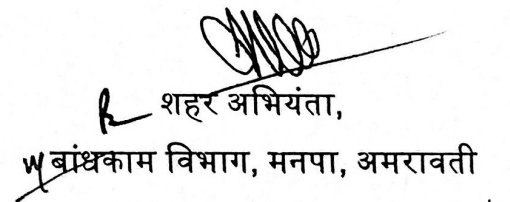 शहर अभियंता,
बांधकाम विभाग, मनपा, अमरावती